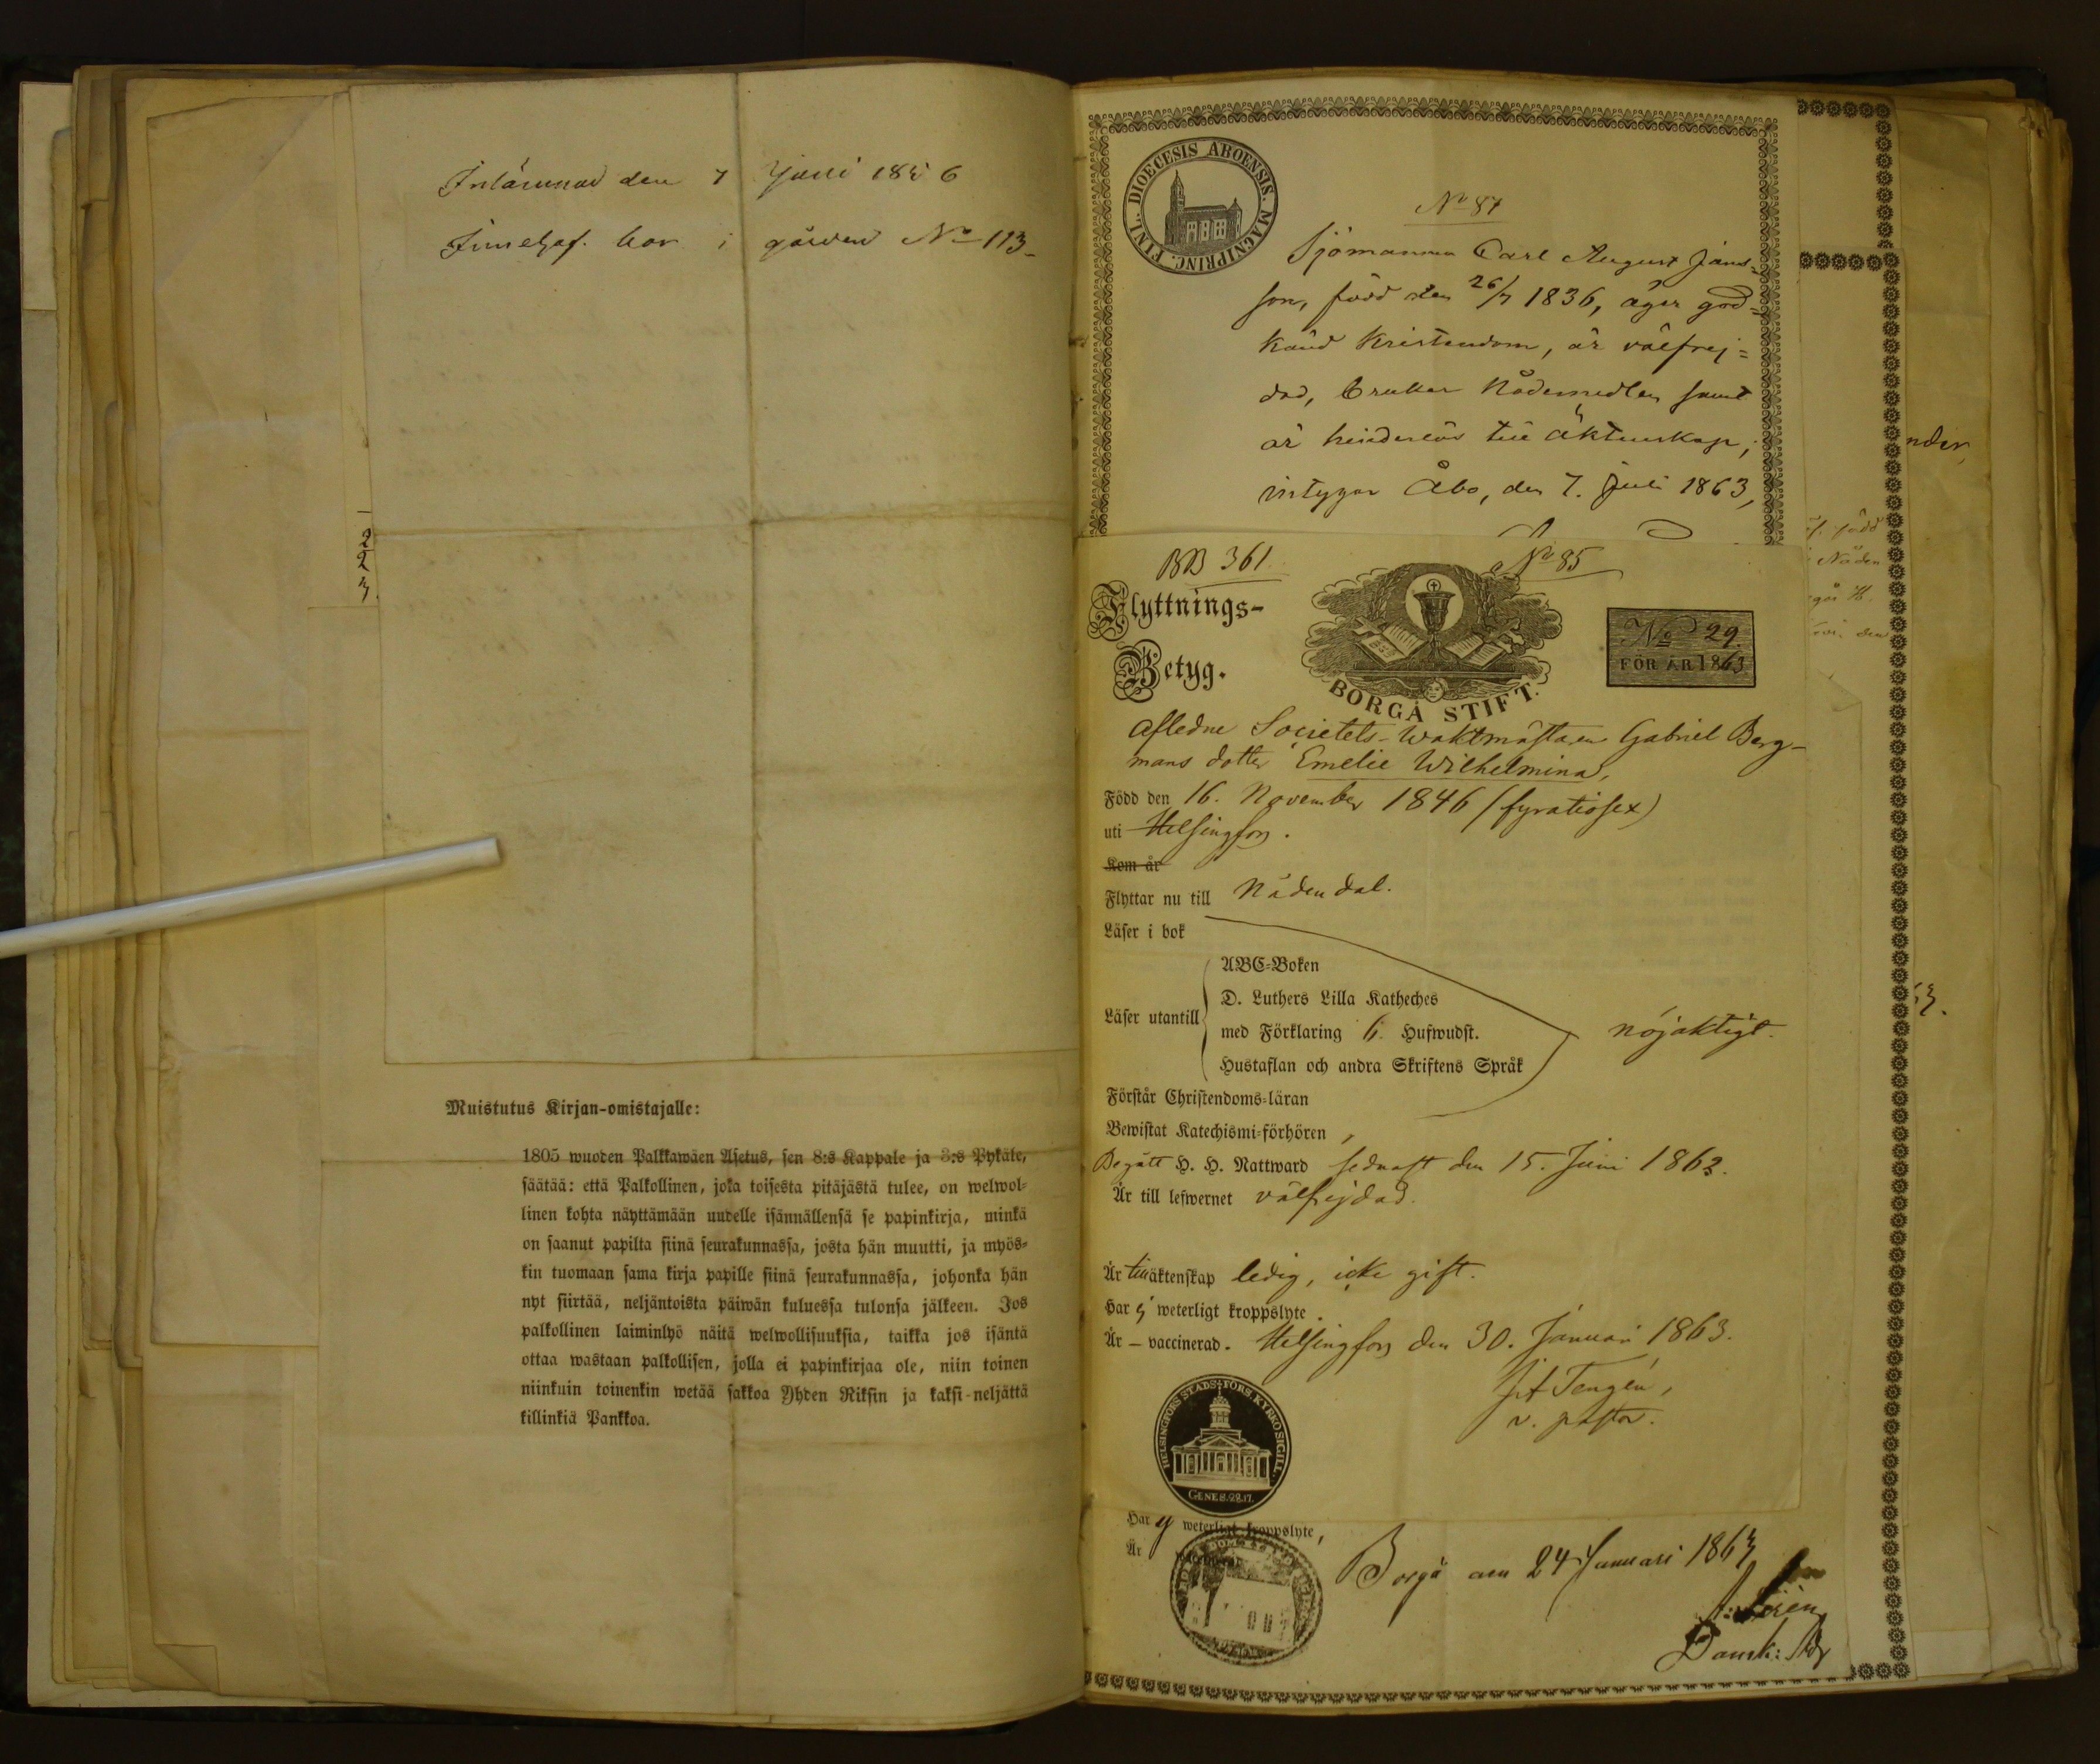 Inlämnad den 7 Juni 1856
Innehaf. bor i gården No 113
2
2
3
Muistutus Kirjan-omistajalle:
1805 wuoden Palkkawäen Asetus, sen 8:s Kappale ja 3:s Pykäle,
säätää: että Palkollinen, joka toisesta pitäjästä tulee, on welwol-
linen kohta näyttämään uudelle isännällensä se papinkirja, minkä
on saanut papilta siinä seurakunnassa, josta hän muutti, ja myös-
kin tuomaan sama kirja papille siinä seurakunnassa, johonka hän
nyt siirtää, neljäntoista päiwän kuluessa tulonsa jälkeen. Jos
palkollinen laiminlyö näitä welwollisuuksia, taikka jos isäntä
ottaa wastaan palkollisen, jolla ei papinkirjaa ole, niin toinen
niinkuin toinenkin wetää sakkoa Yhden Riksin ja kaksi-neljättä
killinkiä Pankkoa.
DIOECESIS ABOENSIS. MAGNIPRINC. FINL.
No 87
Sjömannen Carl August Jans-
son, född den 26/7 1836, äger god-
känd Kristendom, är välfrej-
dad, brukar Nådemedlen samt
är hinderlös till Äktenskap,
intygar Åbo, den 7. Juli 1863,
BB 361.
No 85
Flyttnings-
Betyg.
BORGÅ STIFT.
No 29.
FÖR ÅR 1863
Afledne Societets-Waktmästaren Gabriel Berg-
mans dotter Emelie Wilhelmina,
Född den 16. November 1846 (fyratiosex)
uti Helsingfors.
Kom år
Flyttar nu till Nådendal.
Läser i bok
ABC-Boken
D. Luthers Lilla Katheches
Läser utantill
med Förklaring 6. Hufwudst.
nöjaktigt.
Hustaflan och andra Skriftens Språk
Förstår Christendoms-läran
Bewistat Katechismi-förhören
Begått H. H. Nattward sednast den 15. Juni 1862.
Är till lefwernet välfrejdad.
Är till äktenskap ledig, icke gift.
Har ej weterligt kroppslyte.
Är – vaccinerad. Helsingfors den 30. Januari 1863.
Tengén,
v. pastor.
HELSINGFORS STADS-FÖRS. KYRKO SIGILL.
GENES. 28.17.
Har ej weterligt kroppslyte,
Är
Borgå den 24 Januari 1863
nder,
född
Nåden
den